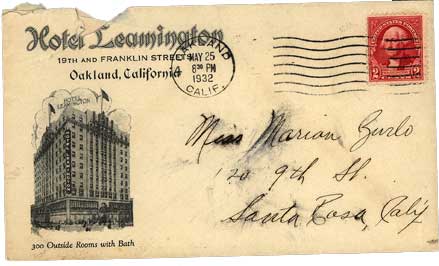 Hotel Leamington
19TH AND FRANKLIN STREETS
Oakland, California
OAKLAND
MAY 25
8 30 PM
1932
CALIF.
2 2
HOTEL
LEAMINGTON
300 Outside Rooms with Bath
Miss Marion Zurlo
120 9th St.
Santa Rosa, Calif